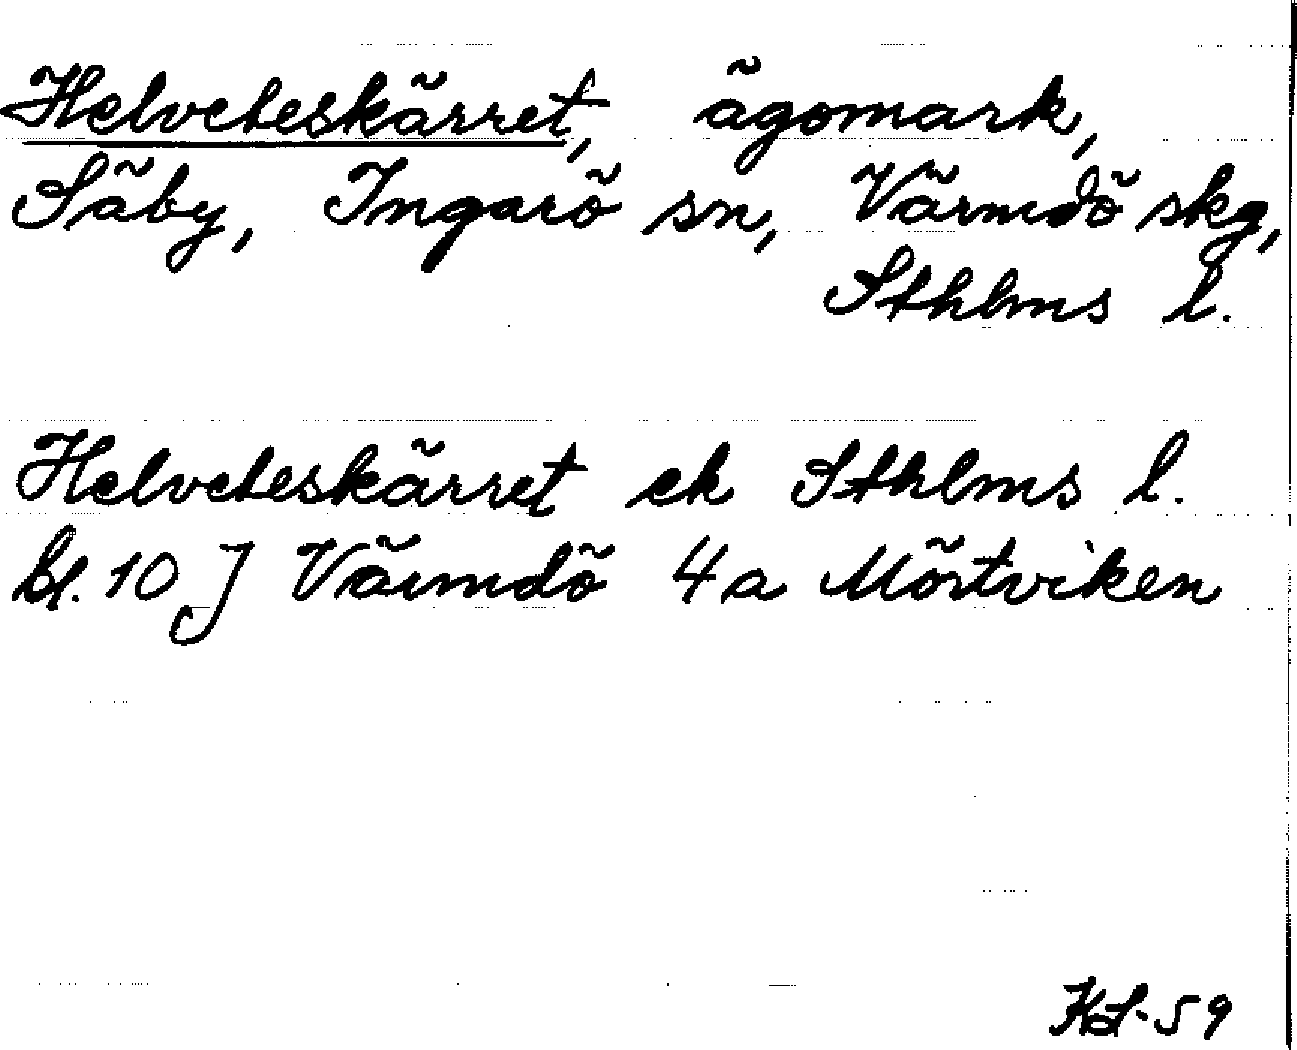 Helveteskärret, ägomark,
Säby, Ingarö sn, Värmdö skg,
Sthlms l.
Helveteskärret ek Sthlms l.
bl. 10 J Värmdö 4a Mörtviken
KL-59